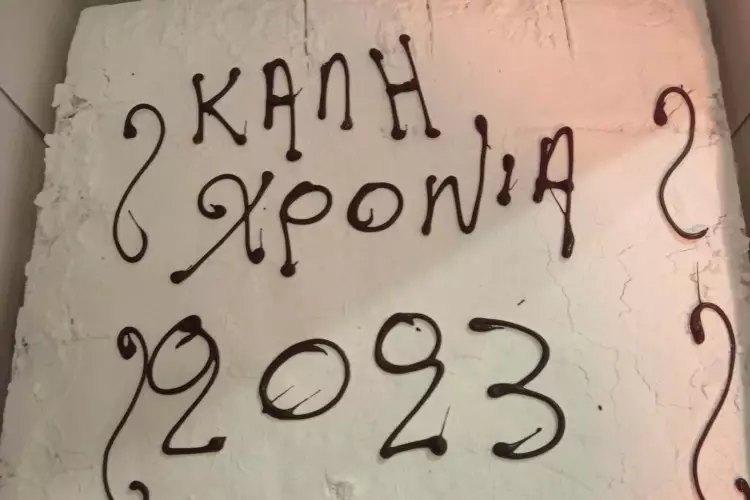 ΚΑΛΗ
ΧΡΟΝΙΑ
2023